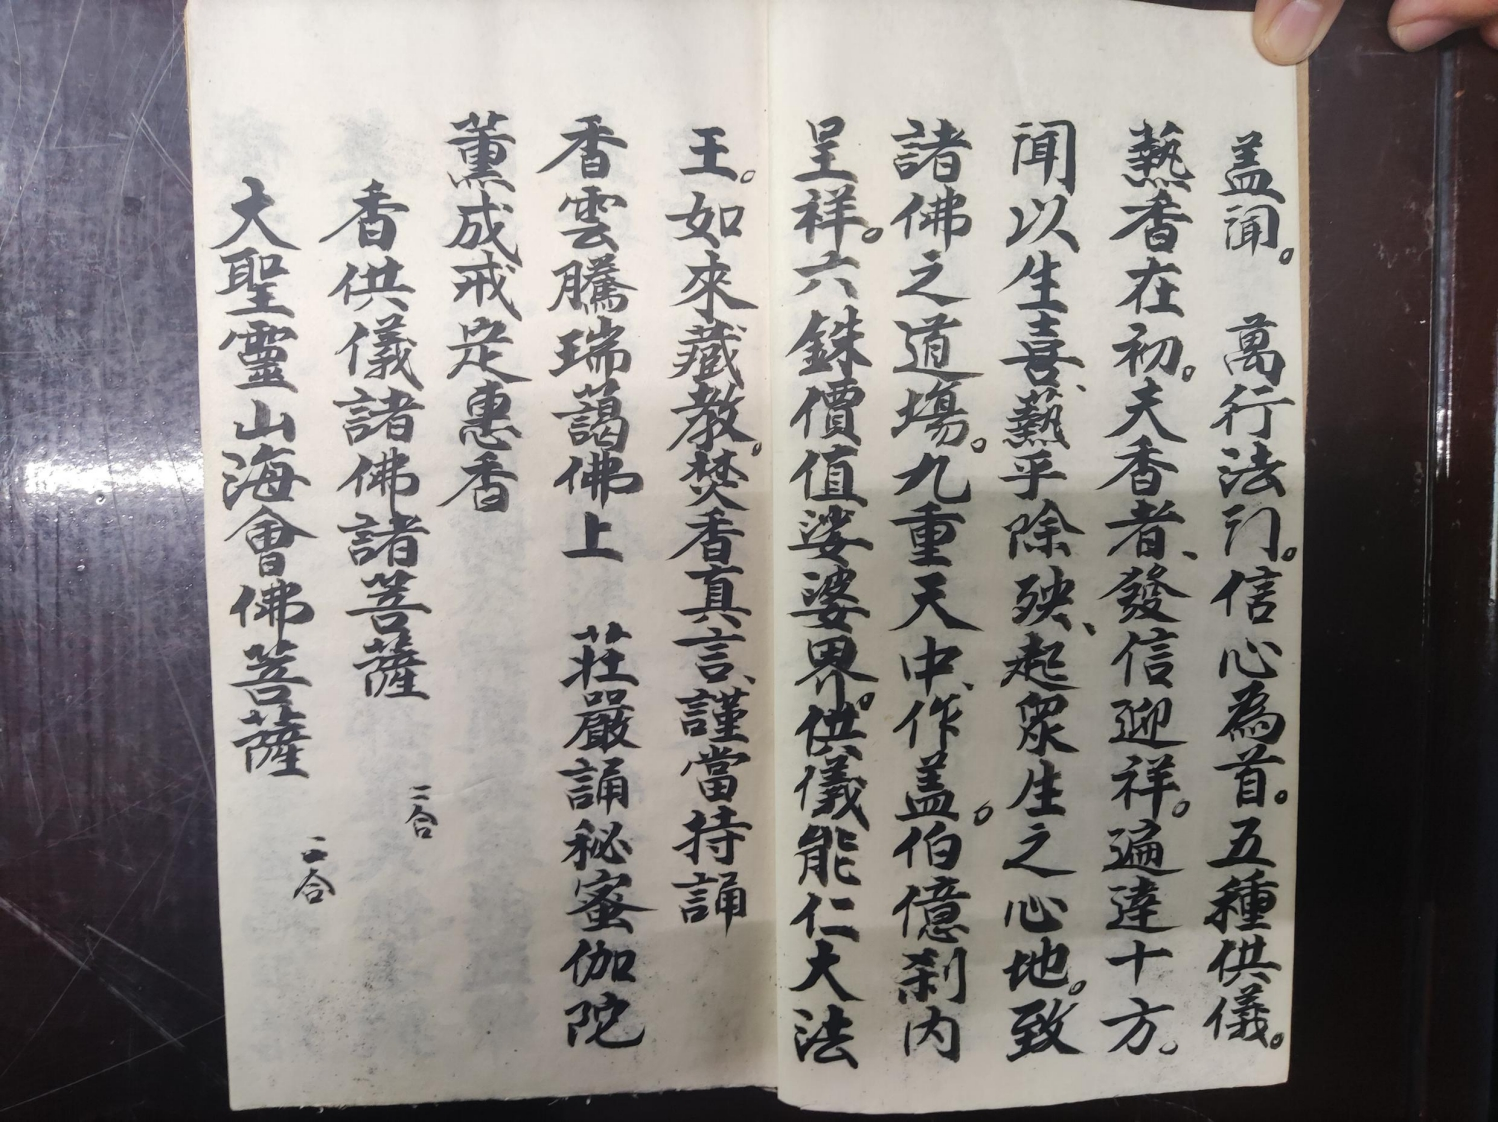 盖聞。　萬行法門。信心為首。五種供儀。
熱香在初。夫香者、發信迎祥。遍達十方。
聞以生喜、熱乎除殃、起眾生之心地。致
諸佛之道場。九重天中、作盖。伯億剎内
呈祥。六銖價值娑婆界。供儀能仁大法
王。如來藏教。焚香真言、謹當持誦
香雲騰瑞藹佛上　莊嚴誦秘蜜伽陀
薰成戒定惠香
香供儀諸佛諸菩薩　二合
大聖靈山海會佛菩薩　二合